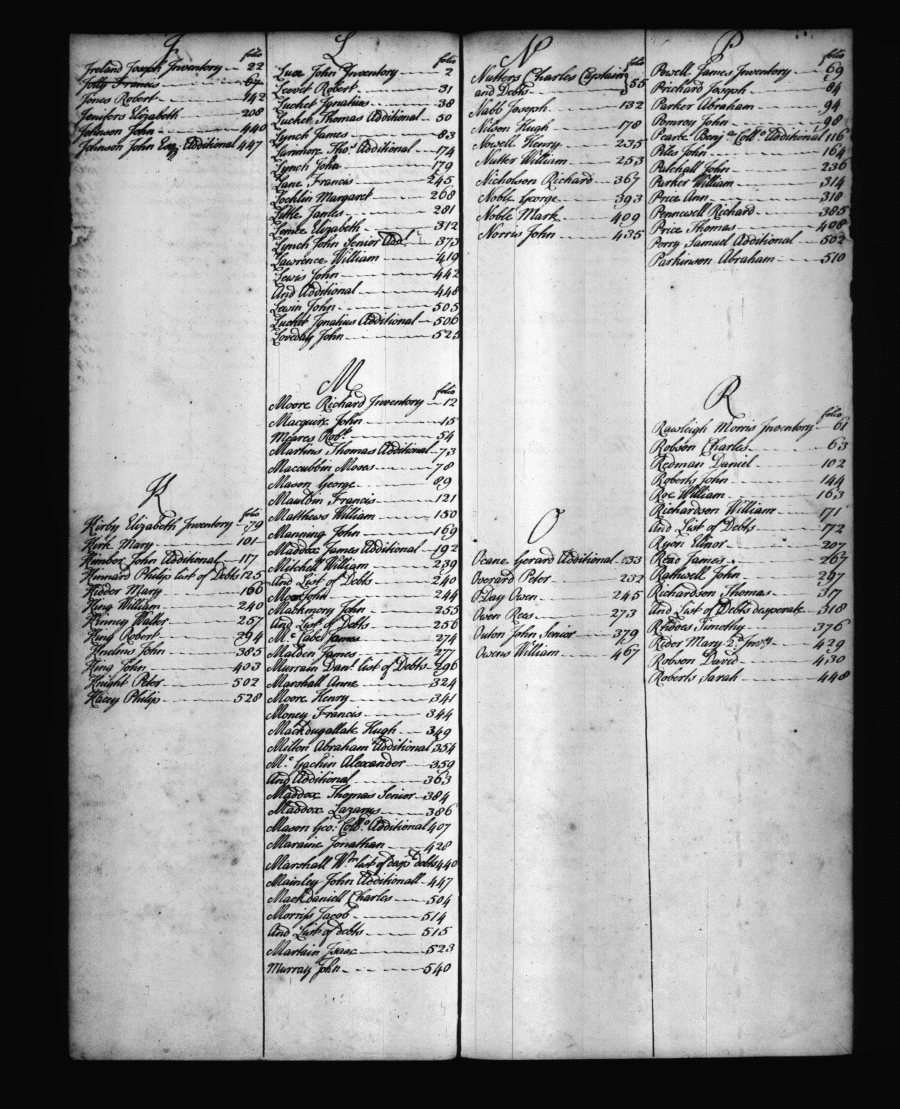 J
folio
Ireland Joseph Inventory 22
Jolly Francis 67
Jones Robert 142
Jenifers Elizabeth 208
Johnson John 440
Johnson John Esq Additional 447
K
folio
Kirby Elizabeth Inventory 79
Kirk Mary 101
Kimbor John Additional 117
Kinnard Philip list of Debts 125
Kidder Mary 166
King William 240
Kinney Walter 257
King Robert 294
Knelms John 385
King John 403
Knight Peter 502
Kacey Philip 528
L
folio
Luce John Inventory 2
Leevet Robert 31
Lucket Ignatius 38
Lucket Thomas Additional 50
Lynch James 83
Larimore Thos Additional 174
Lynch John 179
Lane Francis 245
Locklin Margaret 268
Little James 281
Lembe Elizabeth 312
Lynch John Senior Addl 373
Lawrence William 419
Lewis John 442
And Additional 448
Lewin John 505
Lucket Ignatius Additional 506
Loveday John 525
M
folio
Moore Richard Inventory 12
Macquire John 15
Meares Robt 54
Martins Thomas Additional 73
Maccubbin Moses 78
Mason George 89
Mauldin Francis 121
Matthews William 150
Manning John 169
Maddox James Additional 192
Mitchell William 239
And List of Debts 240
Moor John 244
Mackmory John 255
And List of Debts 256
Mc Cabe James 274
Maiden James 277
Murrain Danl list of Debts 296
Marshall Anne 324
Moore Henry 341
Money Francis 344
Mackdugallak Hugh 349
Milton Abraham Additional 354
Mc Gachin Alexander 359
And Additional 363
Maddox Thomas Senior 384
Maddox Lazarus 386
Mason Geo: Collo Additional 407
Maraine Jonathan 428
Marshall Wm list of desp debts 440
Mainley John Additionall 447
MackDaniell Charles 504
Morriss Jacob 514
And List of debts 515
Martain Isaac 523
Murray John 540
N
folio
Nutters Charles Captain
and Debts 55
Nabb Joseph 132
Nilson Hugh 178
Nowell Henry 235
Nutter William 253
Nicholson Richard 367
Noble George 393
Noble Mark 409
Norris John 435
O
Ocane Gerard Additional 233
Overard Peter 232
ODay Owen 245
Owen Rees 273
Outon John Senior 379
Owens William 467
P
folio
Powell James Inventory 69
Prichard Joseph 84
Parker Abraham 94
Pomroy John 98
Pearce Benja Collo Additional 116
Piles John 164
Patchall John 236
Parker William 314
Price Ann 318
Pennewell Richard 385
Price Thomas 408
Perry Samuel Additional 502
Parkinson Abraham 510
R
folio
Rawleigh Morris Inventory 61
Robson Charles 63
Redman Daniel 102
Roberts John 144
Roe William 163
Richardson William 171
And List of Debts 172
Ryon Elinor 207
Read James 267
Rathwell John 297
Richardson Thomas 317
And List of Debts desperate 318
Rhodes Timothy 376
Rider Mary 2d Invy 429
Robson David 430
Roberts Sarah 448